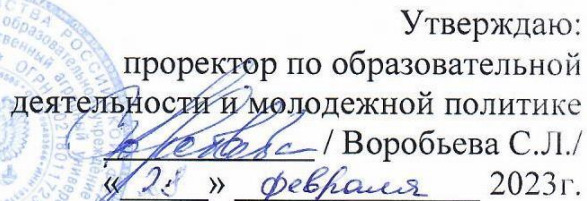 Утверждаю:
проректор по образовательной
деятельности и молодежной политике
/ Воробьева С.Л./
« » февраля 2023г.